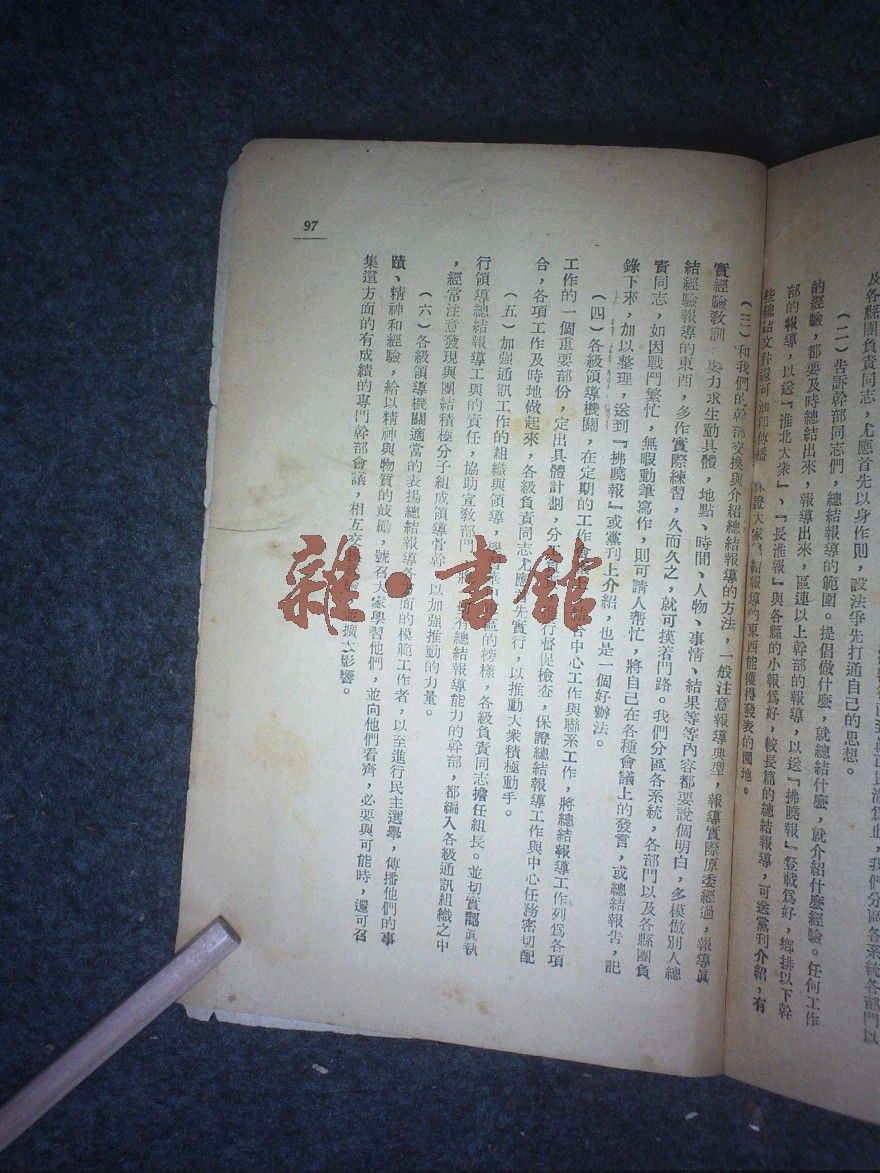 及各縣團負責同志,尤應首先以身作則,設法爭先打通自己的思想。
(二)告訴幹部同志們,總結報導的範圍。提倡做什麼,就總結什麼,就介紹什麼經驗。任何工作
的經驗,都要及時總結出來,報導出來,區連以上幹部的報導,以送『拂曉報』登載爲好,鄉排以下幹
部的報導,以送『淮北大衆』、『長淮報』與各縣的小報爲好,較長篇的總結報導,可送黨刊介紹,有
些總結文件還可油印傳播 保證大家總結報導的東西能獲得發表的園地。
(三)和我們的幹部交換與介紹總結報導的方法,一般注意報導典型,報導實際原委經過,報導眞
實經驗教訓 要力求生動具體,地點、時間、人物、事情、結果等等內容都要說個明白,多模倣別人總
結經驗報導的東西,多作實際練習,久而久之,就可摸着門路。我們分區各系統,各部門以及各縣團負
責同志,如因戰鬥繁忙,無暇動筆寫作,則可請人幫忙,將自己在各種會議上的發言,或總結報告,記
錄下來,加以整理,送到『拂曉報』或黨刊上介紹,也是一個好辦法。
(四)各級領導機關,在定期的工作 結合中心工作與聯系工作,將總結報導工作列爲各項
工作的一個重要部份,定出具體計劃,分 行督促檢查,保證總結報導工作與中心任務密切配
合,各項工作及時地做起來,各級負責同志尤應 先實行,以推動大衆積極動手。
(五)加強通訊工作的組織與領導, 區的榜樣,各級負責同志擔任組長。並切實認眞執
行領導總結報導工與的責任,協助宣教部門 有總結報導能力的幹部,都編入各級通訊組織之中
,經常注意發現與團結積極分子組成領導骨幹 以加強推動的力量。
(六)各級領導機關適當的表揚總結報導各 面的模範工作者,以至進行民主選舉,傳播他們的事
蹟、精神和經驗,給以精神與物質的鼓勵,號召大家學習他們,並向他們看齊,必要與可能時,還可召
集這方面的有成績的專門幹部會議,相互交換 擴大影響。
97
雜·書館